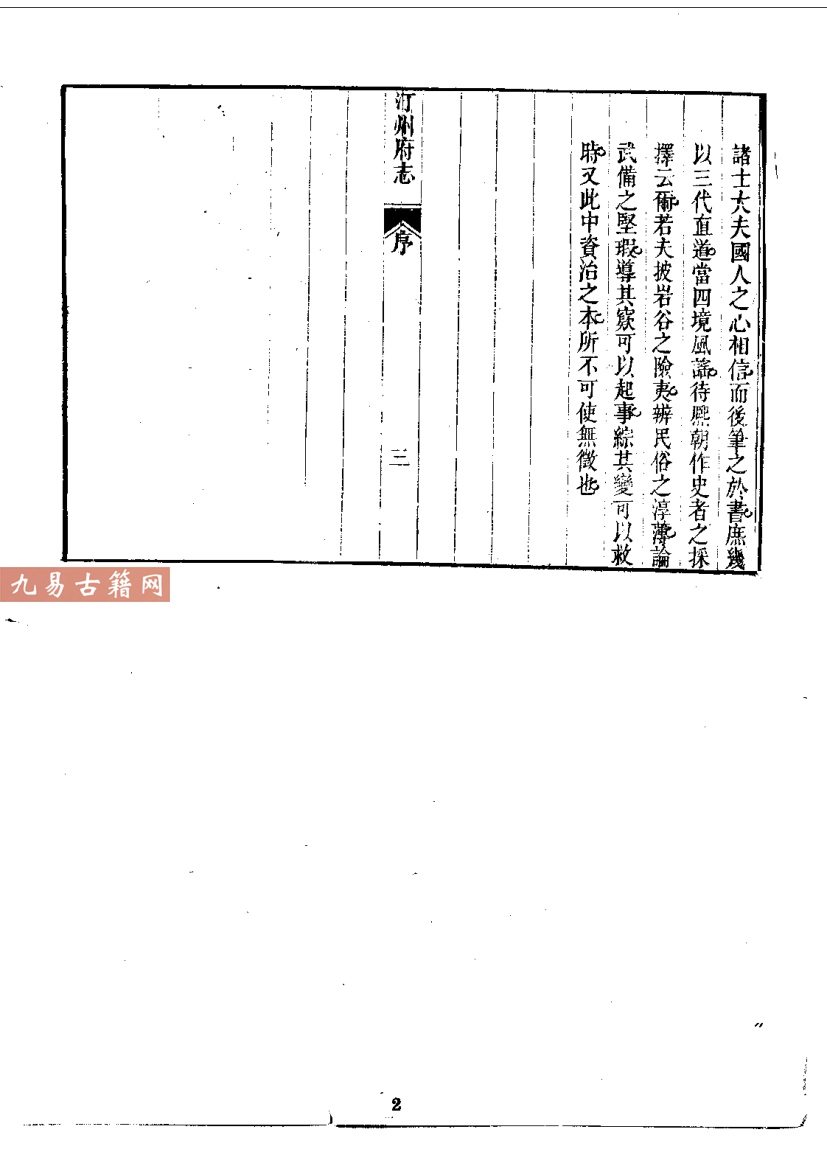 諸士大夫國人之心相信而後筆之於書庶幾
以三代直道當四境風謠待熙朝作史者之採
擇云爾若夫披岩谷之險夷辨民俗之淳薄論
武備之堅瑕導其窽可以起事綜其變可以救
時又此中資治之本所不可使無徵也
汀州府志
序
三
九易古籍网
2